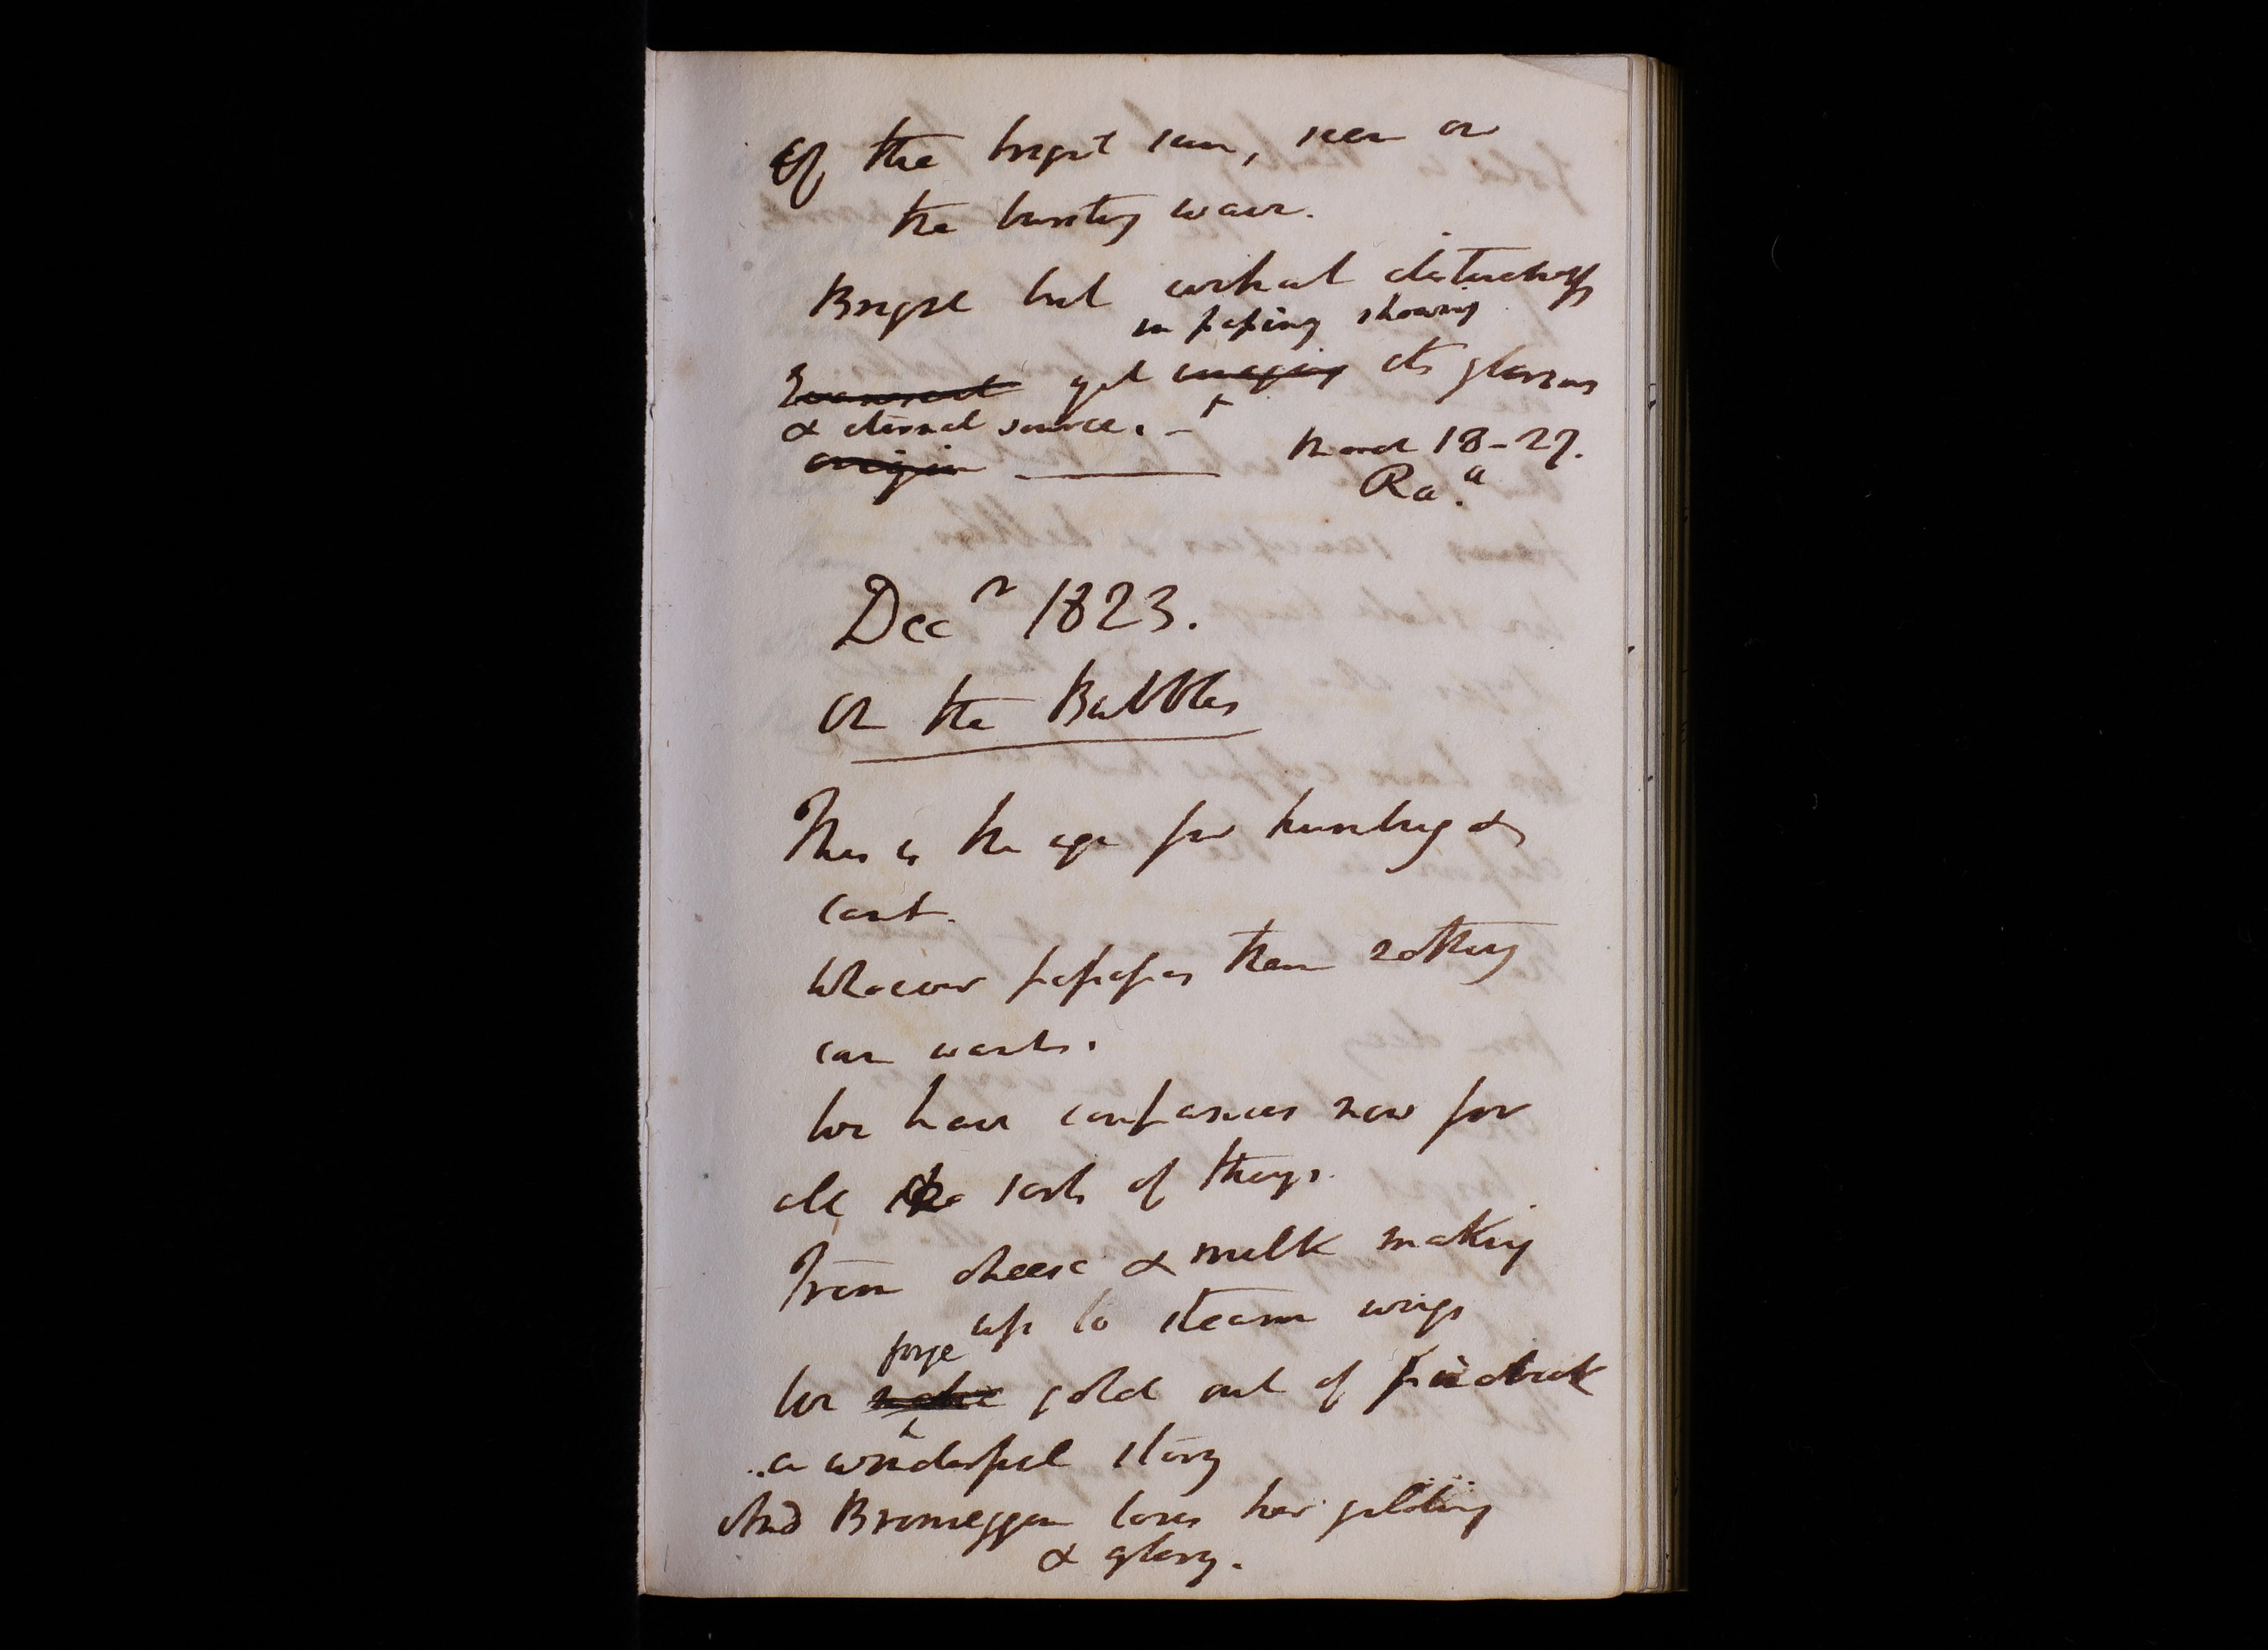 Of the bright sun, seen on
the bursting wave.
Bright but without disturbing
in passing showing
Evanescent yet imaging its glorious
& eternal source. –
origin March 18–27.
Ra.a
Decr 1823.
On the Bubbles
This is the age for humbug &
cant.
Whoever possesses them nothing
can want.
We have companies now for
all the sorts of things.
From cheese & milk making
up to steam wings
forge
We make gold out of pinchbeck
a wonderful story
And Bromeggem loses her gilding
& glory.